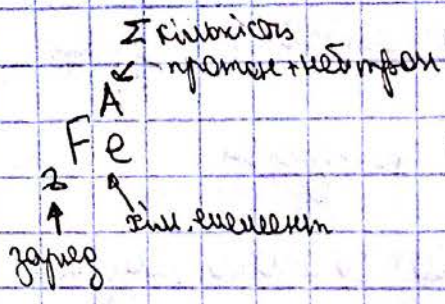 Σ кількість
протон+нейтрон
A
Fe
z
хім. елемент
заряд